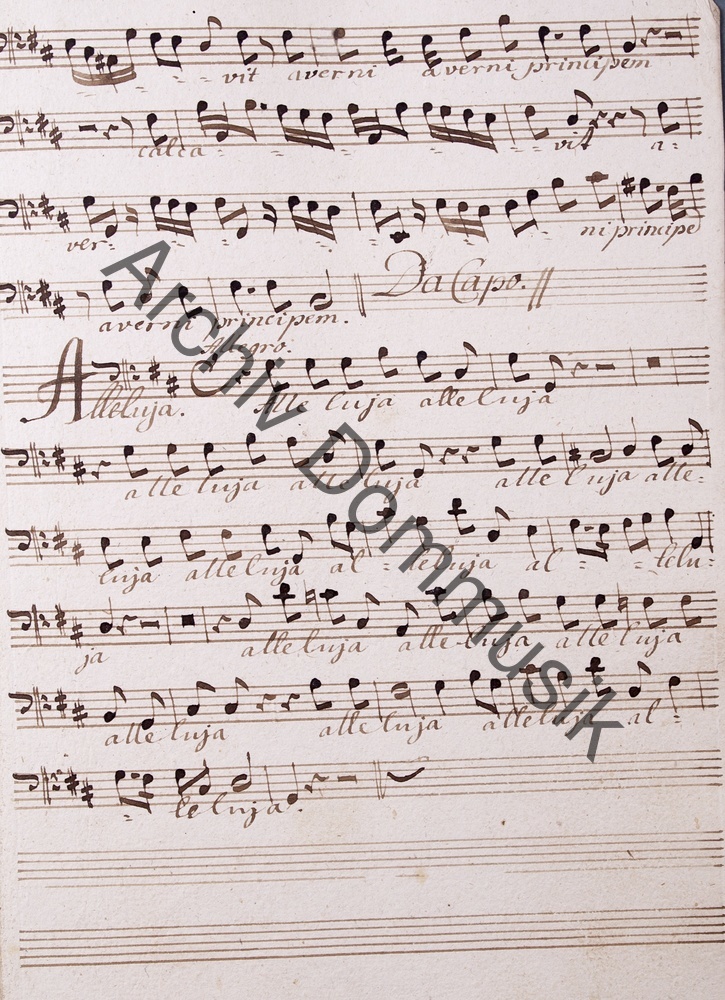 vit averni averni principem
calca - - vit a=
ver= - - - - ni principe
Da Capo.
averni principem.
Allegro.
Alleluja. Alle luja alleluja
alle luja alleluja alle luja alle=
luja alleluja al= leluja al= - lelu=
ja alleluja alleluja alleluja
alleluja alleluja alleluja al=
leluja.
Archiv Dommusik